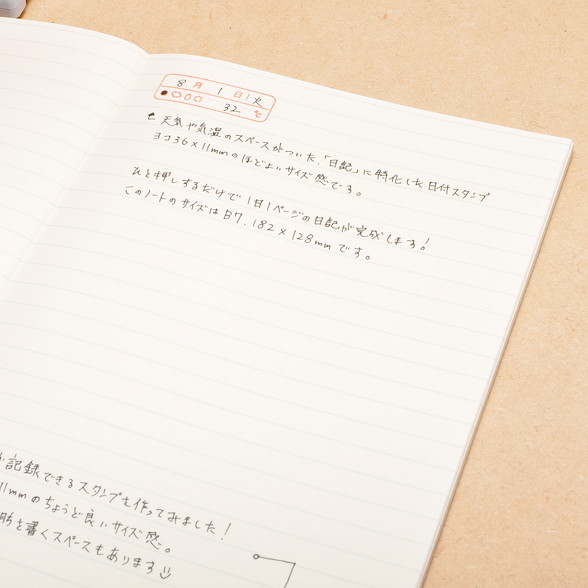 8月 1日 火
32 ℃
天気や気温のスペースがついた、「日記」に特化した日付スタンプ
ヨコ36×11mmのほどよいサイズ感です。
ひと押しするだけで1日1ページの日記が完成します!
このノートのサイズはB7.182×128mmです。
記録できるスタンプも作ってみました!
11mmのちょうど良いサイズ感。
を書くスペースもあります